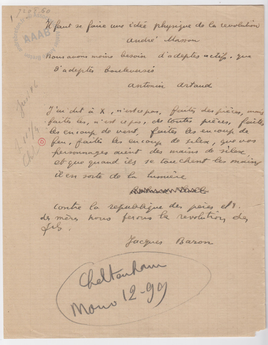 Il faut se faire une idée physique de la révolution
André Masson
Nous avons moins besoin d'adeptes actifs que
d'adeptes bouleversés
Antonin Artaud
J'ai dit à X, n'est-ce pas, faites des pièces, mais
faites les, n'est-ce pas, de toutes pièces, faites
les en coup de vent, faites les en coup de
feu, faites les en coup de silex, que vos
personnages aient des mains de silex
et que quand ils se touchent les mains
il en sorte de la lumière
Contre la république des pères et
des mères nous ferons la révolution des
fils
Jacques Baron
Cheltenham
Mono 12-99
RAAB